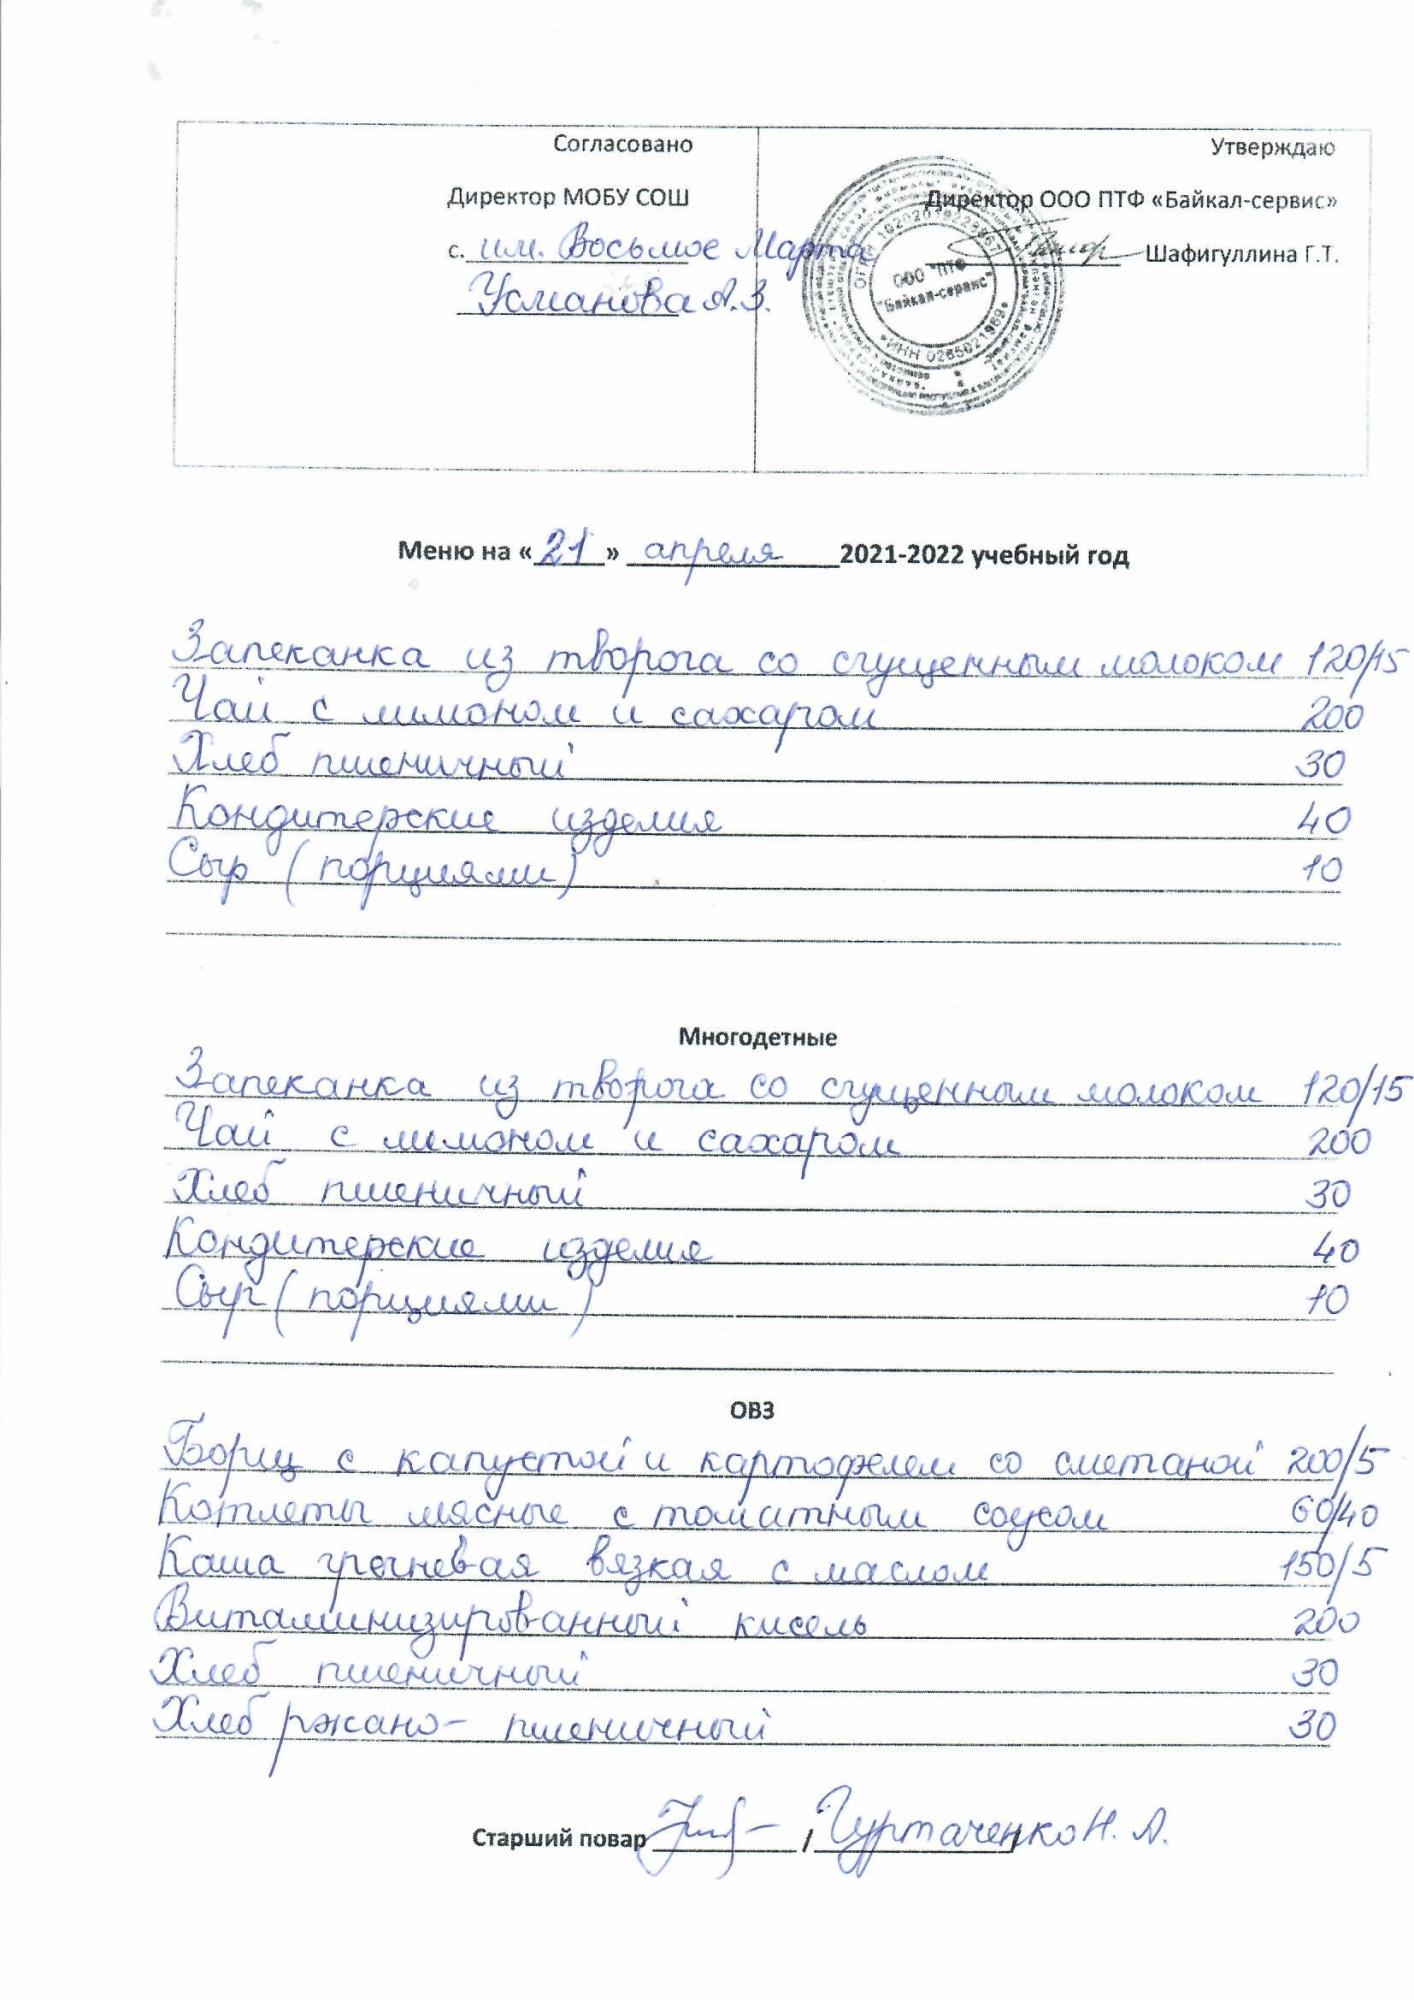 Согласовано
Директор МОБУ СОШ
с. им. Восьмое Марта
Усманова А.З.
Утверждаю
Директор ООО ПТФ «Байкал-сервис»
Шафигуллина Г.Т.
ООО "ПТФ
"Байкал-сервис"
ИНН 0265021969
Меню на «21» апреля 2021-2022 учебный год
Запеканка из творога со сгущенным молоком 120/15
Чай с лимоном и сахаром 200
Хлеб пшеничный 30
Кондитерские изделия 40
Сыр (порциями) 10
Многодетные
Запеканка из творога со сгущенным молоком 120/15
Чай с лимоном и сахаром 200
Хлеб пшеничный 30
Кондитерские изделия 40
Сыр (порциями) 10
ОВЗ
Борщ с капустой и картофелем со сметаной 200/5
Котлеты мясные с томатным соусом 60/40
Каша гречневая вязкая с маслом 150/5
Витаминизированный кисель 200
Хлеб пшеничный 30
Хлеб ржано- пшеничный 30
Старший повар / Гуртаченко Н. А. /